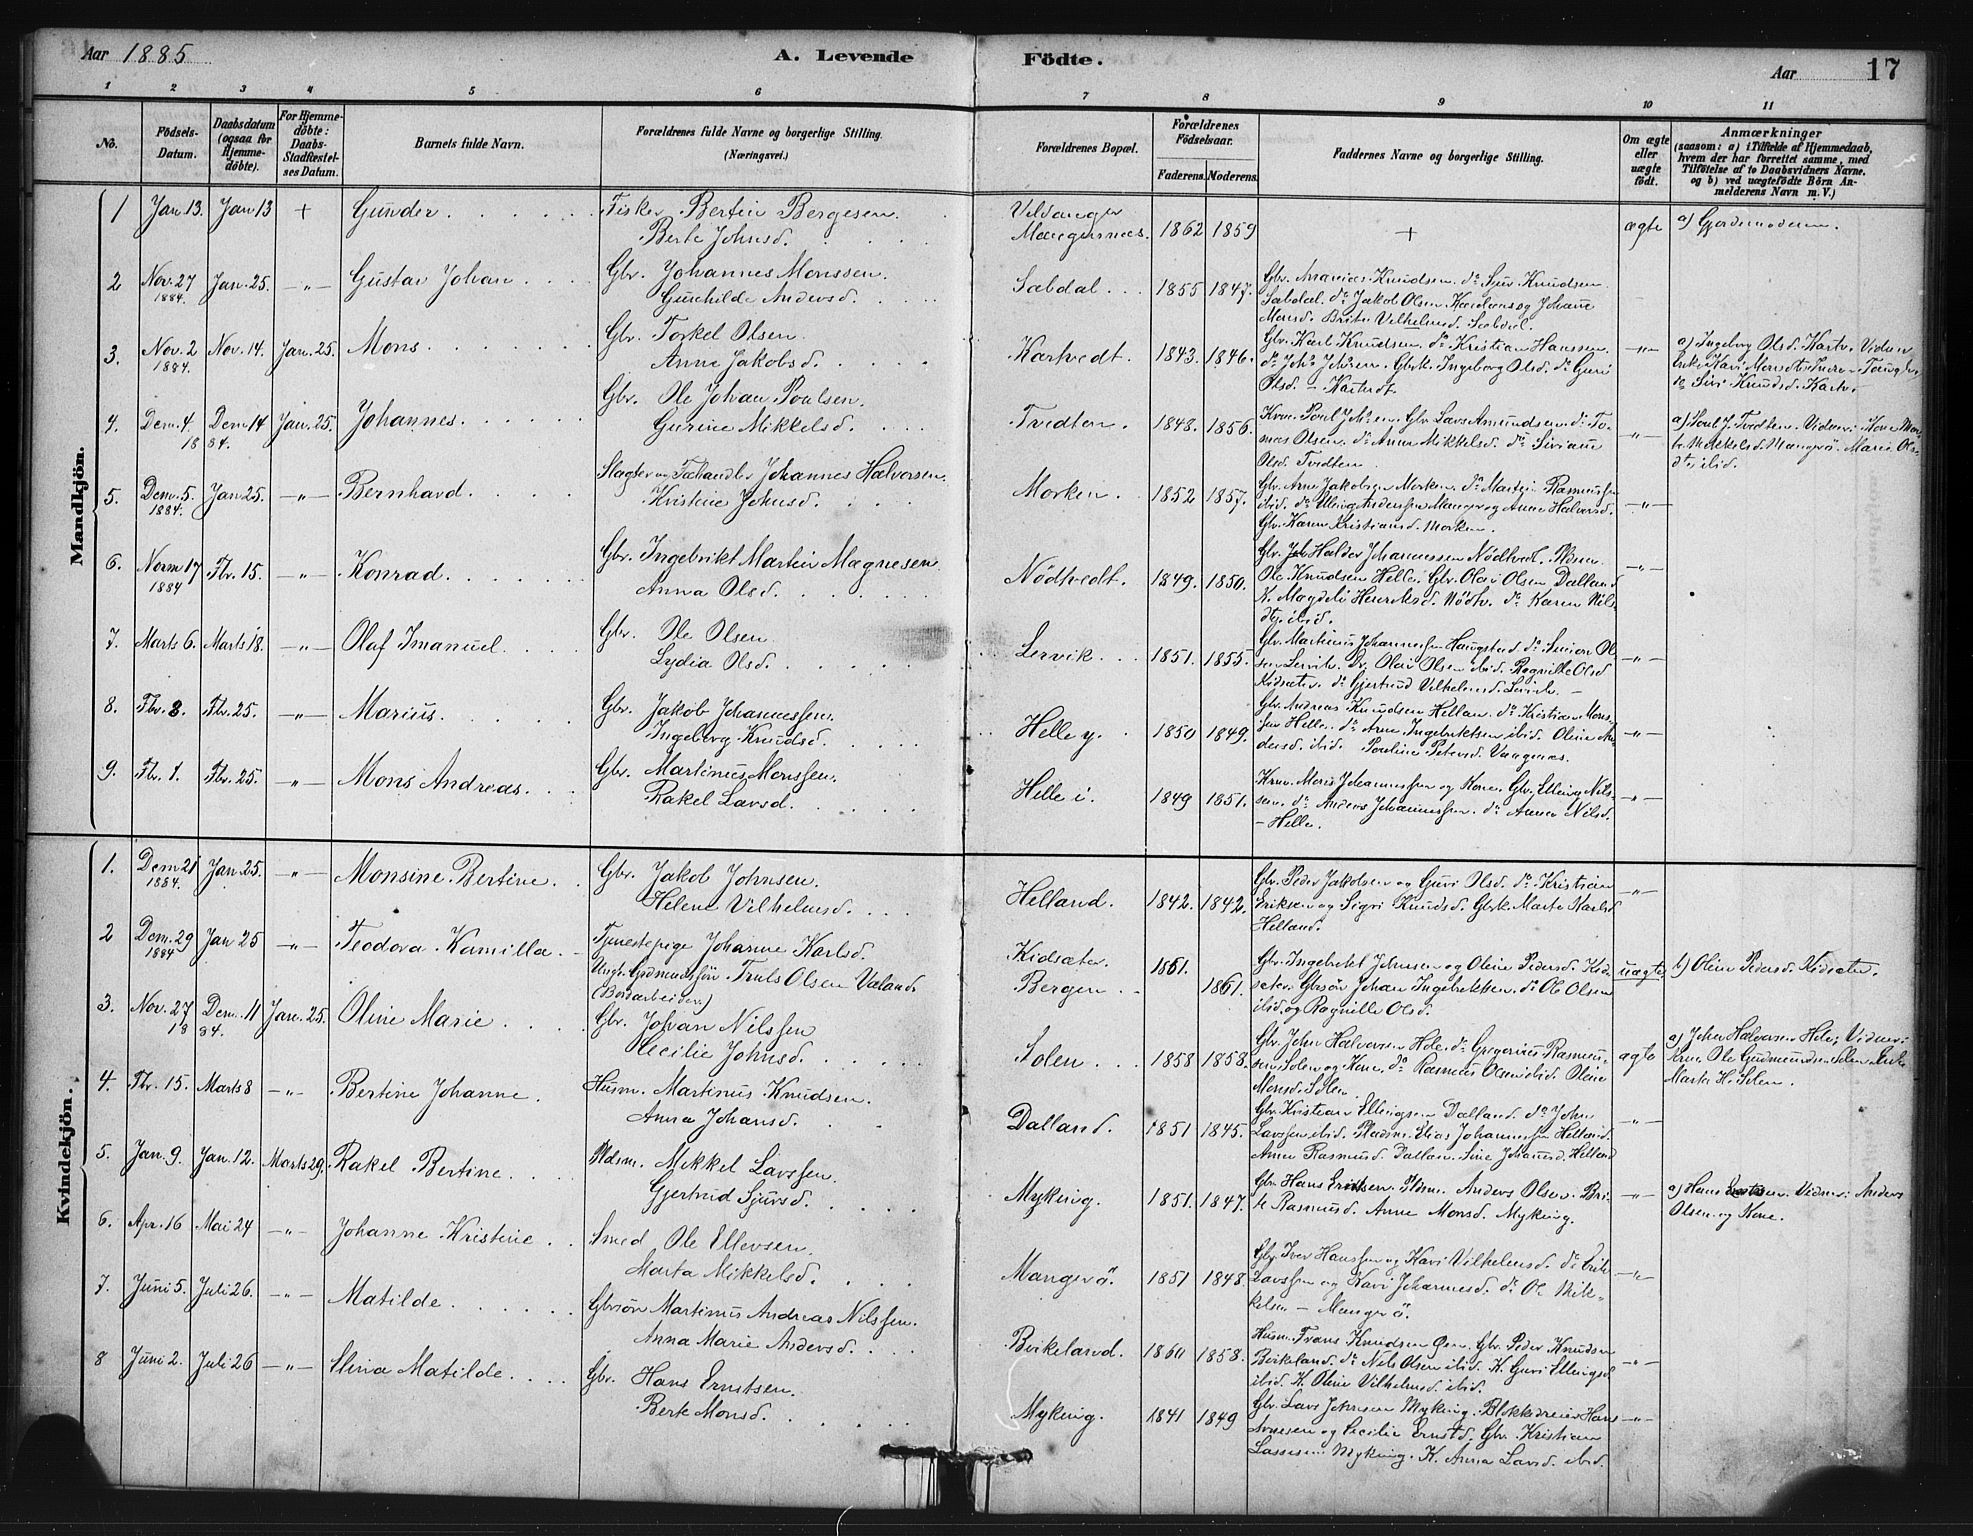 Aar 1885 A. Levende Födte. Aar 17
1 2 3 4 5 6 7 8 9 10 11
No. Födsels-Datum. Daabsdatum (ogsaa for Hjemme-döbte). For Hjemme-döbte: Daabs-Stadfæstel-ses Datum. Barnets fulde Navn. Forældrenes fulde Navne og borgerlige Stilling. (Næringsvei.) Forældrenes Bopæl. Forældrenes Födselsaar. Faderens. Moderens. Faddernes Navne og borgerlige Stilling. Om ægte eller uægte födt. Anmærkninger (saasom: a) i Tilfælde af Hjemmedaab, hvem der har forrettet samme, med Tilföielse af to Daabsvidners Navne. og b) ved uægtefödte Börn An-melderens Navn m. V.)
Mandkjön.
1 Jan 13. Jan 13 + Gunder Fisker Bertin Bergesen
Berte Johnsd. Mangersnes. 1862 1859 + ægte a) Gjordemoderen.
2 Nov. 27 1884. Jan. 25. -"- Gustav Johan Gbr. Johannes Monssen.
Gunhilde Andersd. Sæbdal 1855 1847. Gbr. Knudsen. do Sjur Knudsen
Sæbdal. do Jakob Olsen og Johanne
Monsd. Brite Vilhelmsd. Sæbdal.
3. Nov. 2 1884. Nov. 14. Jan. 25. Mons Gbr. Torkel Olsen
Anne Jakobsd. Kartvedt. 1843. 1846. Gbr. Karl Knudsen. do Kristian Hanssen.
Ingeborg Olsd. do Guri
Olsd. - Kartvedt. -"- a) Ingeborg Olsd. Kartv. Vidner
Siri Knudsd. Kartv.
4. Dem. 4. 1884. Dem 14 Jan. 25. Johannes. Gbr. Ole Johan Poulsen.
Gurine Mikkelsd. Tvedten. 1848. 1856. Gbr. Lars Amundsen. do To-
mas Olsen. do Anna Mikkelsd. do Siriane
Olsd. Tvedten -"- a) Poul J. Tvedten. Vidner: Kone
Mikkelsd. Mangerö. Marie Ols-
dtr ibid.
5. Dem. 5. 1884. Jan 25. -"- Bernhard Johannes Halvorsen.
Kristine Johnsd. Morken. 1852 1857. Gbr. Arne Jakobsen Morken. do Martin Rasmussen
ibid. do Elling Anderssen Manger og Anne Halvorsd.
Gbr. Karen Kristiansd. Morken. -"-
6. Novm 17 1884 Fbr. 15. -"- Konrad. Gbr. Ingebrikt Martin Magnesen
Anna Olsd. Nödtvedt. 1849. 1850. Gbr. Haldor Johannessen Nödtvedt.
Ole Knudsen Helle. Gbr. Olai Olsen Dalland
K. Magdeli Henriksd. Nödtv. do Karen Nils-
dtr. ibid. -"-
7. Marts 6. Marts 18. -"- Olaf Imanuel Gbr. Ole Olsen
Lydia Olsd. Lervik 1851. 1855. Gbr. Martinus Johannessen Haugstad do Simon Ol-
sen Lervik. Olai Olsen ibid. Ragnilde Olsd
Kidsæter. do Gjertrud Vilhelmsd. Lervik. -"-
8. Fbr. 8. Fbr. 25. -"- Marius. Gbr. Jakob Johannessen.
Ingeborg Knudsd. Helle y. 1850 1849. Gbr. Andreas Knudsen Helland. do Kristian Mons-
sen Helle. do Arne Ingebriktsen ibid. Oline An-
dersd. ibid. Pauline Petersd. Vaagenes. -"-
9. Fbr. 1. Fbr. 25. -"- Mons Andreas. Gbr. Martinus Monssen.
Rakel Larsd. Helle i. 1849 1851. Mons Johannessen og Kone. Gbr. Elling Nils-
sen. do Anders Johannessen. do Anna Nilsd.
- Helle. -"-
Kvindekjön.
1. Dem 21 1884. Jan. 25. -"- Monsine Bertine. Gbr. Jakob Johnsen.
Helene Vilhelmsd. Helland. 1842. 1842. Gbr. Peder Jakobsen og Guri Olsd. do Kristian
Eriksen og Sigri Knudsd. Gbrk. Marte Karlsd
Helland. -"-
2 Dem. 29 1884 Jan 25 -"- Teodora Kamilla. Tjenestepige Johanne Karlsd.
Ungk. Truls Olsen
(Bodarbeider) Kidsæter. Bergen. 1861. 1861. Gbr. Ingebrikt Johnsen og Oline Pedersd. Kid-
sæter. Gbrsön Johan Ingebriktsen. do Ole Olsen
ibid. og Ragnilde Olsd. uægte b) Oline Pedersd. Kidsæter.
3. Nov. 27 1884. Dem. 11 Jan. 25. Oline Marie Gbr. Johan Nilssen
Cecilie Johnsd. Solen. 1858 1858. Gbr. John Halvorsen Hole. do Gregorius Rasmus-
sen Solen og Kone. do Rasmus Olsen ibid. Oline
Monsd. Solen ægte a) John Halvorsen Hole; Vidner:
Ole Gudmundsen Solen
Marta H. Solen.
4. Fbr. 15. Marts 8 -"- Bertine Johanne. Husm. Martinus Knudsen.
Anna Johansd. Dalland. 1851 1845. Gbr. Kristian Ellingsen Dalland. do John
Larssen ibid. Pladsm. Elias Johannessen Helland.
Anna Rasmusd. Dalland. Sine Johansd. Helland -"-
5. Jan. 9. Jan. 12. Marts 29. Rakel Bertine. Pldsm. Mikkel Larssen.
Gjertrud Sjursd. Myking. 1851. 1847. Gbr. Hans Ernstsen. Anders Olsen. Bri-
te Rasmusd. Anne Monsd. Myking. -"- a) Hans Ernstsen. Vidner: Anders
Olsen og Kone.
6. Apr. 16 Mai 24 -"- Johanne Kristine Smed Ole Ellevsen.
Marta Mikkelsd. Mangerö. 1851 1848. Gbr. Iver Hanssen og Kari Vilhelmsd. do Erik
Larssen og Kari Johannesd. do Ole Mik-
kelsen - Mangerö. -"-
7. Juni 5. Juli 26. -"- Matilde Gbrsön Martinus Andreas Nilssen.
Anna Marie Andersd. Birkeland. 1860 1858. Husm. Frans Knudsen Gbr. Peder Knudsen
Birkeland. do Nils Olsen ibid. K. Guri Ellingsd
ibid. K. Oline Vilhelmsd. ibid. -"-
8 Juni 2. Juli 26 -"- Stina Matilde. Gbr. Hans Ernstsen.
Berte Monsd. Myking. 1841 1849 Gbr. Lars Johnsen Myking. Blokkdreier Hans
og Cecilie Ernstd. Gbr. Kristian
Lassesen Myking. K. Anna Larsd. ibid. -"-